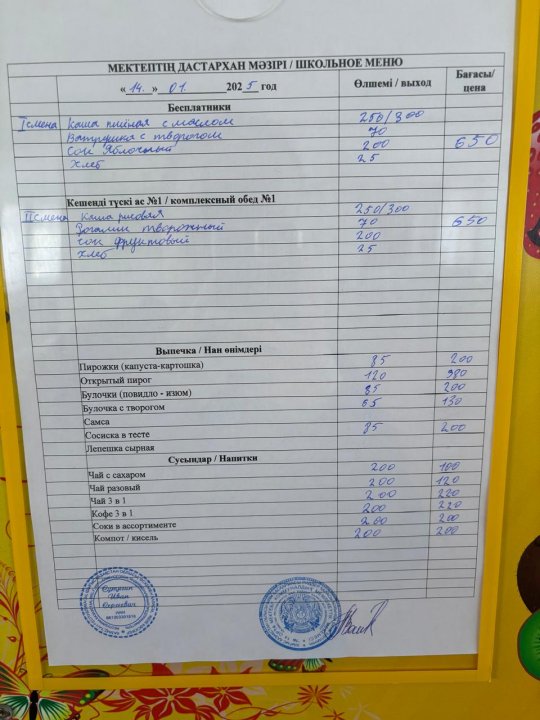 МЕКТЕПТІҢ ДАСТАРХАН МӘЗІРІ / ШКОЛЬНОЕ МЕНЮ
« 14. » 01. 2025 год Өлшемі / выход Бағасы/ цена
Бесплатники
I смена Каша пшёная с маслом 250/300
Ватрушка с творогом 70
Сок Яблочный 200 650
Хлеб 25
Кешенді түскі ас №1 / комплексный обед №1
II смена Каша рисовая 250/300
Рогалик творожный 70 650
Сок фруктовый 200
Хлеб 25
Выпечка / Нан өнімдері
Пирожки (капуста-картошка) 85 200
Открытый пирог 120 380
Булочки (повидло - изюм) 85 200
Булочка с творогом 65 130
Самса
Сосиска в тесте 85 200
Лепешка сырная
Сусындар / Напитки
Чай с сахаром 200 100
Чай разовый 200 120
Чай 3 в 1 200 220
Кофе 3 в 1 200 220
Соки в ассортименте 200 200
Компот / кисель 200 200
Иван
Сергеевич
ИИН